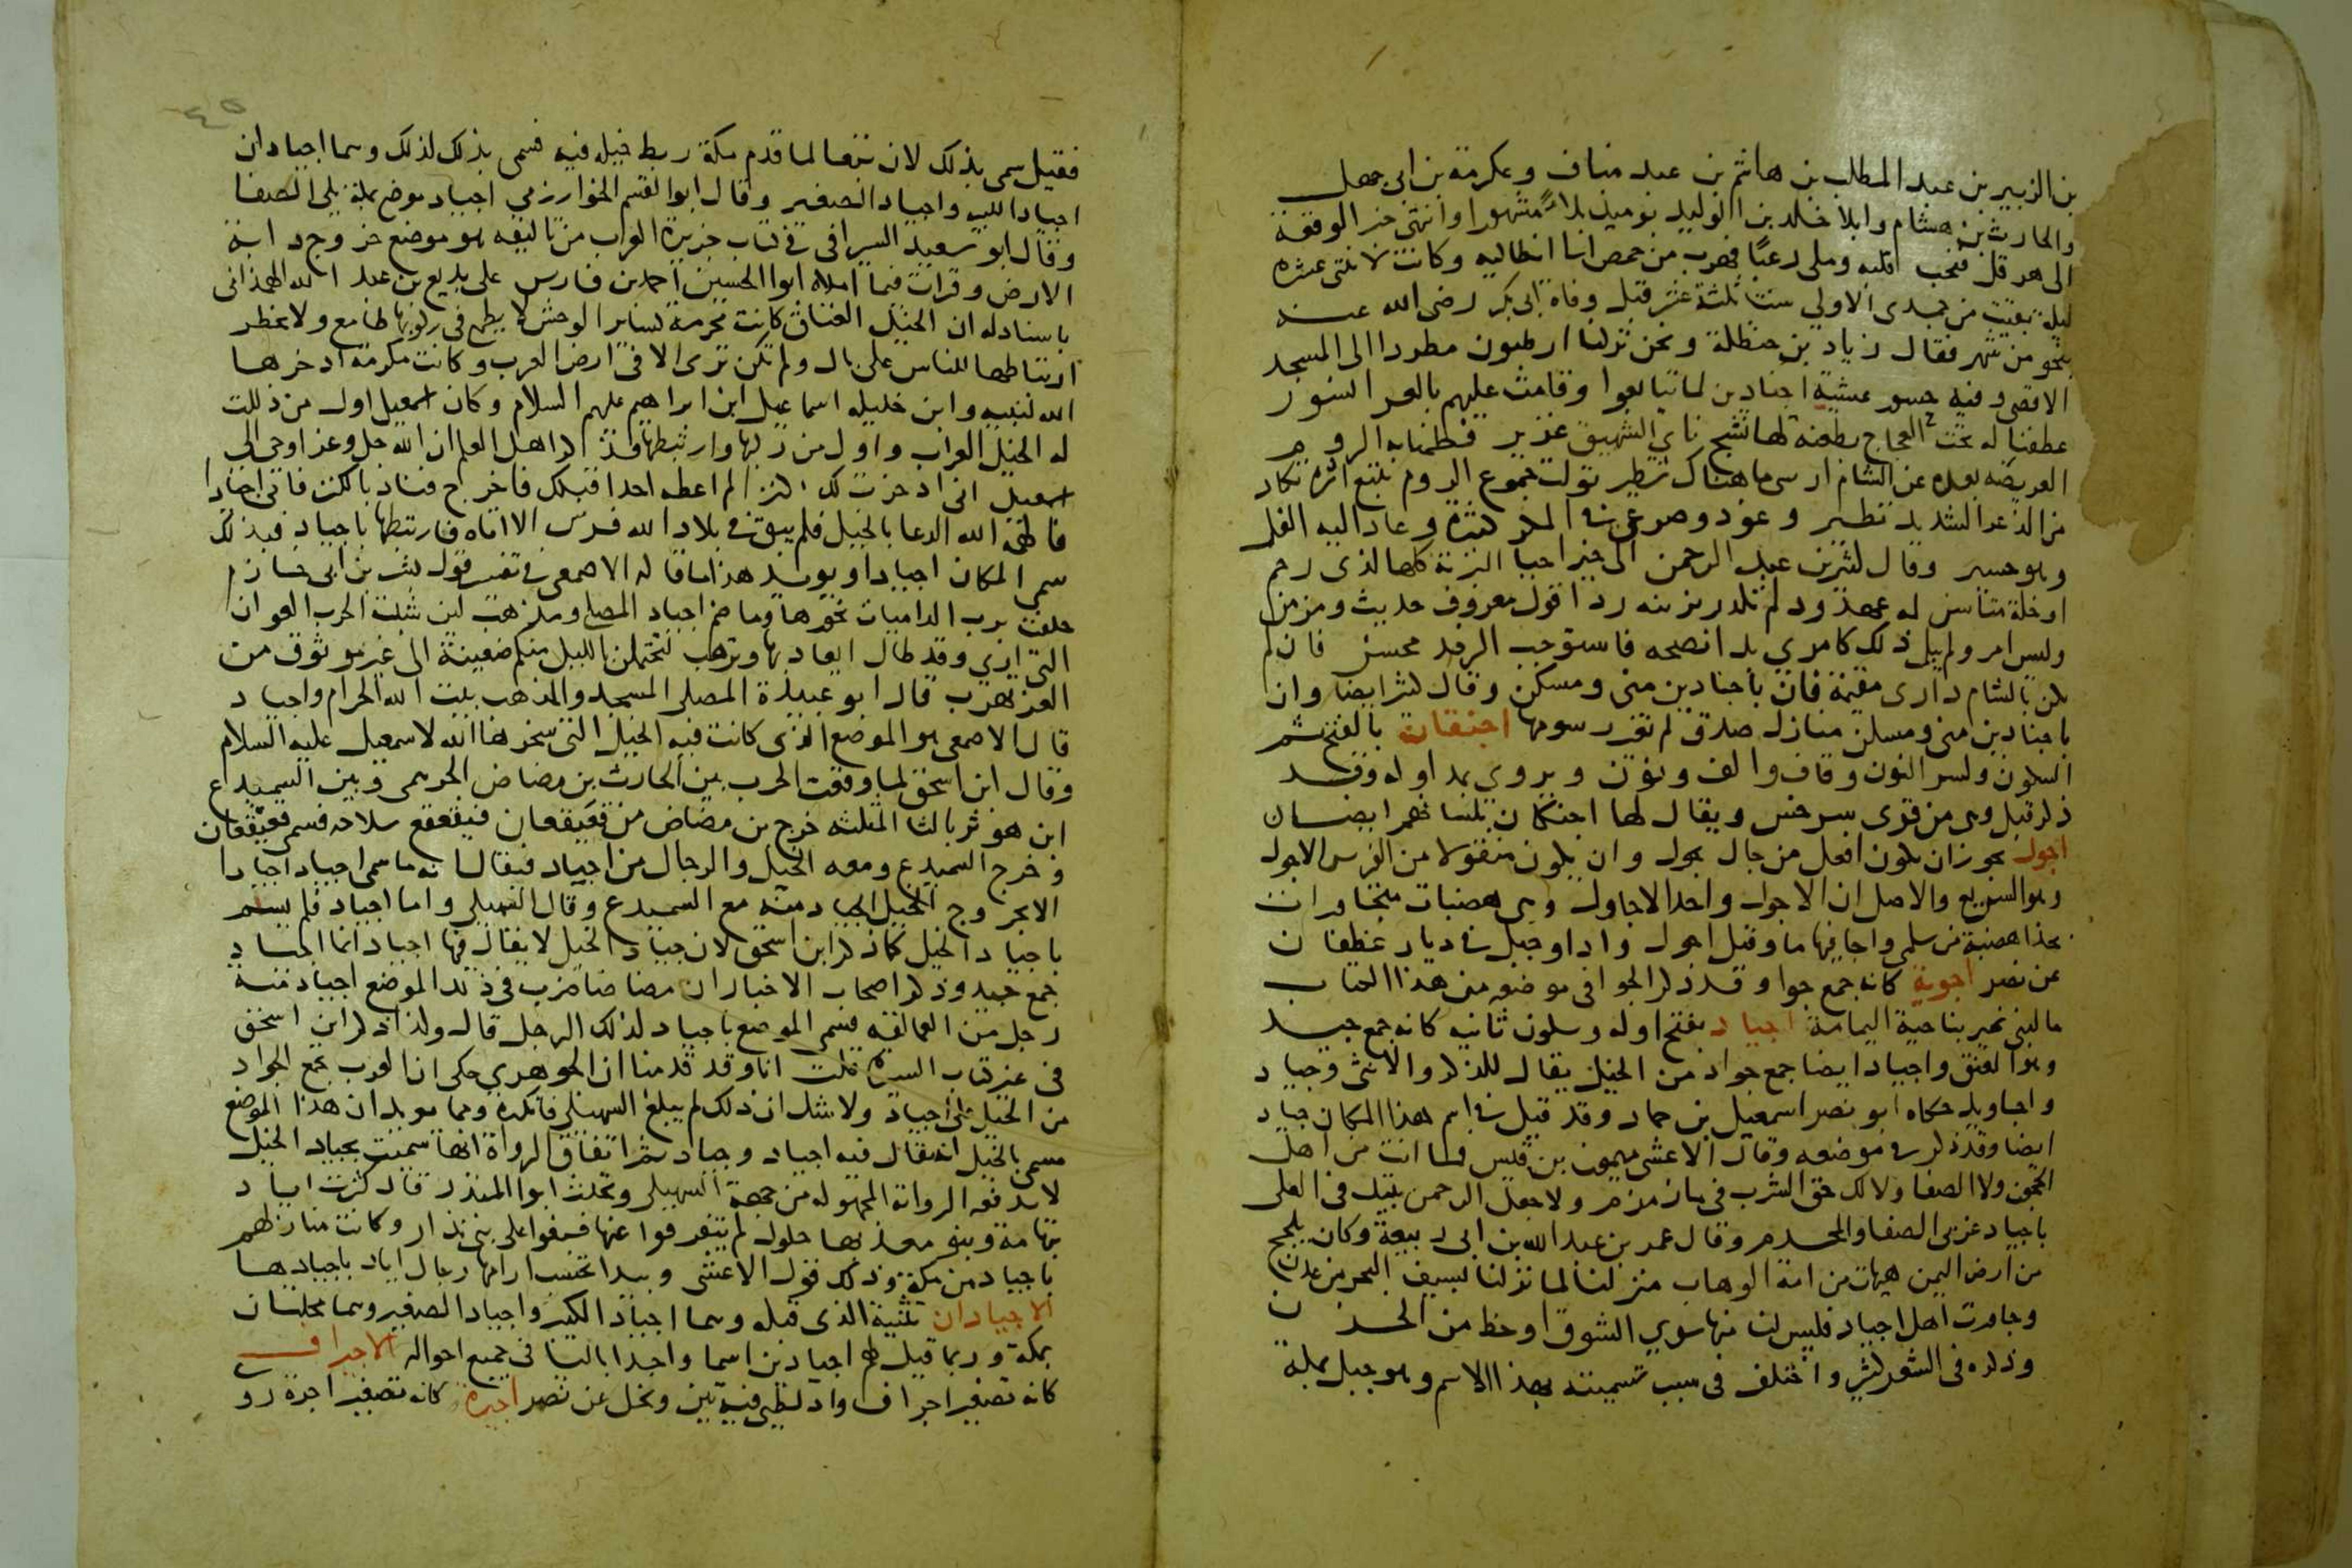 بن الزبير بن عبد المطلب بن هاشم بن عبد مناف وعكرمة بن ابي جهل
والحارث بن هشام وابلا خالد بن الوليد يوميذ بلاءً مشهورا وانتهى خبر الوقعة
الى هرقل فنخب قلبه وملى رعبًا فهرب من حمص الى انطاكيه وكانت لاثنتى عشره
ليلة بقيت من جمدى الاولي سنة ثلثة عشر قبل وفاة ابى بكر رضى الله عنه
بنحو من شهر فقال زياد بن حنظلة ونحن تركنا ارطبون مطردا الى المسجد
الاقصى وفيه حسور عشية اجنادين لما تتابعوا وقامت عليهم بالعرا النسور
عطفنا له تحت العجاج بطعنة لها نشج ناي الشهيق غزير فطمنا به الروم
العريضه بعده عن الشام ارسى ما هناك شطير تولت جموع الروم تتبع اثره تكاد
من الذعر الشديد تطير وغودر صرعى في المكر كثيرة وعاد اليه الفل
وهو حسير وقال كثير بن عبد الرحمن الى خير احيا البرية كلها لذى رحم
او خلة متأسن له عهد ود لم تكدر يزينه ردا قول معروف حديث ومزمن
وليس امر ولم ينل ذلك كامري بدا نصحه فاستوجب الرفد محسن فان لم
تكن بالشام دارى مقيمة فان باجنادين منى ومسكن وقال كثير ايضا وان
باجنادين منى ومسكن منازل صدق لم تغير رسومها اجنقان بالفتح ثم
السكون وكسر النون وقاف والف ونون ويروى بمد اوله وقد
ذكر قبل وهى من قرى سرخس ويقال لها اجنكان بلسانهم ايضا
اجول يجوز ان يكون افعل من جال يجول وان يكون منقولا من الفرس الاجول
وهو السريع والاصل ان الاجول واحد الاجاول وهى هضبات متجاورات
بحذا هضبة من سلمى واجا فيها ما وقيل اجول واد او جبل في ديار غطفان
عن نصر اجوية كانه جمع جوا وقد ذكر الجوا فى موضعه من هذا الكتاب
ما لبنى نمير بناحية اليمامة اجياد بفتح اوله وسكون ثانيه كانه جمع جيد
وهو العنق واجياد ايضا جمع جواد من الخيل يقال للذكر والانثى وجياد
واجاويد حكاه ابو نصر اسمعيل بن حماد وقد قيل في اسم هذا المكان جياد
ايضا وقد ذكر في موضعه وقال الاعشى ميمون بن قيس فما انت من اهل
الحجون ولا الصفا ولا لك حق الشرب فى ما زمزم ولا جعل الرحمن بيتك فى العلى
باجياد غربى الصفا والمحرم وقال عمر بن عبد الله بن ابى ربيعة وكان يلجج
من ارض اليمن هيهات من امة الوهاب منزلنا لما نزلنا بسيف البحر من عدن
وجاورت اهل اجياد فليس لنا منها سوي الشوق او حظ من الحزن
وذكره فى الشعر كثير واختلف فى سبب تسميته بهذا الاسم وهو جبل بمكة
٤٥
فقيل سمى بذلك لان تبعا لما قدم مكة ربط خيله فيه فسمى بذلك لذلك وهما اجيادان
اجياد الكبير واجياد الصغير وقال ابو القسم الخوارزمي اجياد موضع بمكة يلى الصفا
وقال ابو سعيد السيرافى فى كتاب جزيرة العرب من تاليفه هو موضع خروج دابة
الارض وقرات فيما املاه ابوا الحسين احمد بن فارس على بديع بن عبد الله الهمذانى
باسناد له ان الخيل العتاق كانت محرمة كساير الوحش لا يطمع فى ركوبها طامع ولا يخطر
ارتباطها للناس على بال ولم تكن ترى الا فى ارض العرب وكانت مكرمة ادخرها
الله لنبيه وابن خليله اسماعيل ابن ابراهيم عليهم السلام وكان اسمعيل اول من ذللت
له الخيل العراب واول من ركبها وارتبطها فذكر اهل العلم ان الله جل وعز اوحى الى
اسمعيل انى ادخرت لك كنزا لم اعطه احدا قبلك فاخرج فناد بالكنز فاتى اجيادا
فالهمه الله الدعا بالخيل فلم يبق في بلاد الله فرس الا اتاه فارتبطها باجياد فبذلك
سمى المكان اجيادا ويويد هذا ما قاله الاصمعى في تفسير قول بشر بن ابى خازم
حلفت برب الداميات نحورها وما ضم اجياد المصلى ومذهب لين شبت الحرب العوان
التى ارى وقد طال ابعاد بها وترهب لتحتملن بالليل منكم ضعينة الى غير موثوق من
العز تهرب قال ابو عبيدة المصلى المسجد والمذهب بيت الله الحرام واجياد
قال الاصمعى هو الموضع الذى كانت فيه الخيل التى سخرها الله لاسمعيل عليه السلام
وقال ابن اسحق لما وقعت الحرب بين الحارث بن مضاض الجرهمى وبين السميدع
ابن هوثر بالثا المثلثه خرج بن مضاض من قعيقعان فتقعقع سلاحه فسمى قعيقعان
وخرج السميدع ومعه الخيل والرجال من اجياد فيقال انه ما سمى اجياد اجيادا
الا بخروج الخيل الجياد منه مع السميدع وقال السهيلى واما اجياد فلم يسم
باجياد الخيل كما ذكر ابن اسحق لان جياد الخيل لا يقال فيها اجياد انما اجياد
جمع جيد وذكر اصحاب الاخبار ان مضاضا ضرب فى ذلك الموضع اجياد مئة
رجل من العمالقه فسمى الموضع باجياد لذلك الرجل قال وكذا ذكر ابن اسحق
فى غير كتاب السيرة قلت انا وقد قدمنا ان الجوهري حكى ان العرب تجمع الجواد
من الخيل على اجياد ولا شك ان ذلك لم يبلغ السهيلى فانكره ومما يويد ان هذا الموضع
مسمى بالخيل انه يقال فيه اجياد وجياد ثم اتفاق الرواة انها سميت بجياد الخيل
لا يدفعه الرواية المجهوله من جهة السهيلى وتحدث ابوا المنذر قال كثرت اياد
بتهامة وبنو معد بها حلول لم يتفرقوا عنها فبغوا على بنى نزار وكانت منازلهم
باجياد من مكة وذلك قول الاعشى وبيدا تحسب ارامها رجال اياد باجيادها
الاجيادان تثنية الذى قبله وهما اجياد الكبير واجياد الصغير وهما محلتان
بمكة وربما قيل لهما اجيادين اسما واحدا باليا فى جميع احواله الاجيراف
كانه تصغير اجراف واد لطى فيه تين ونخل عن نصر اجيرة كانه تصغير اجرة رو